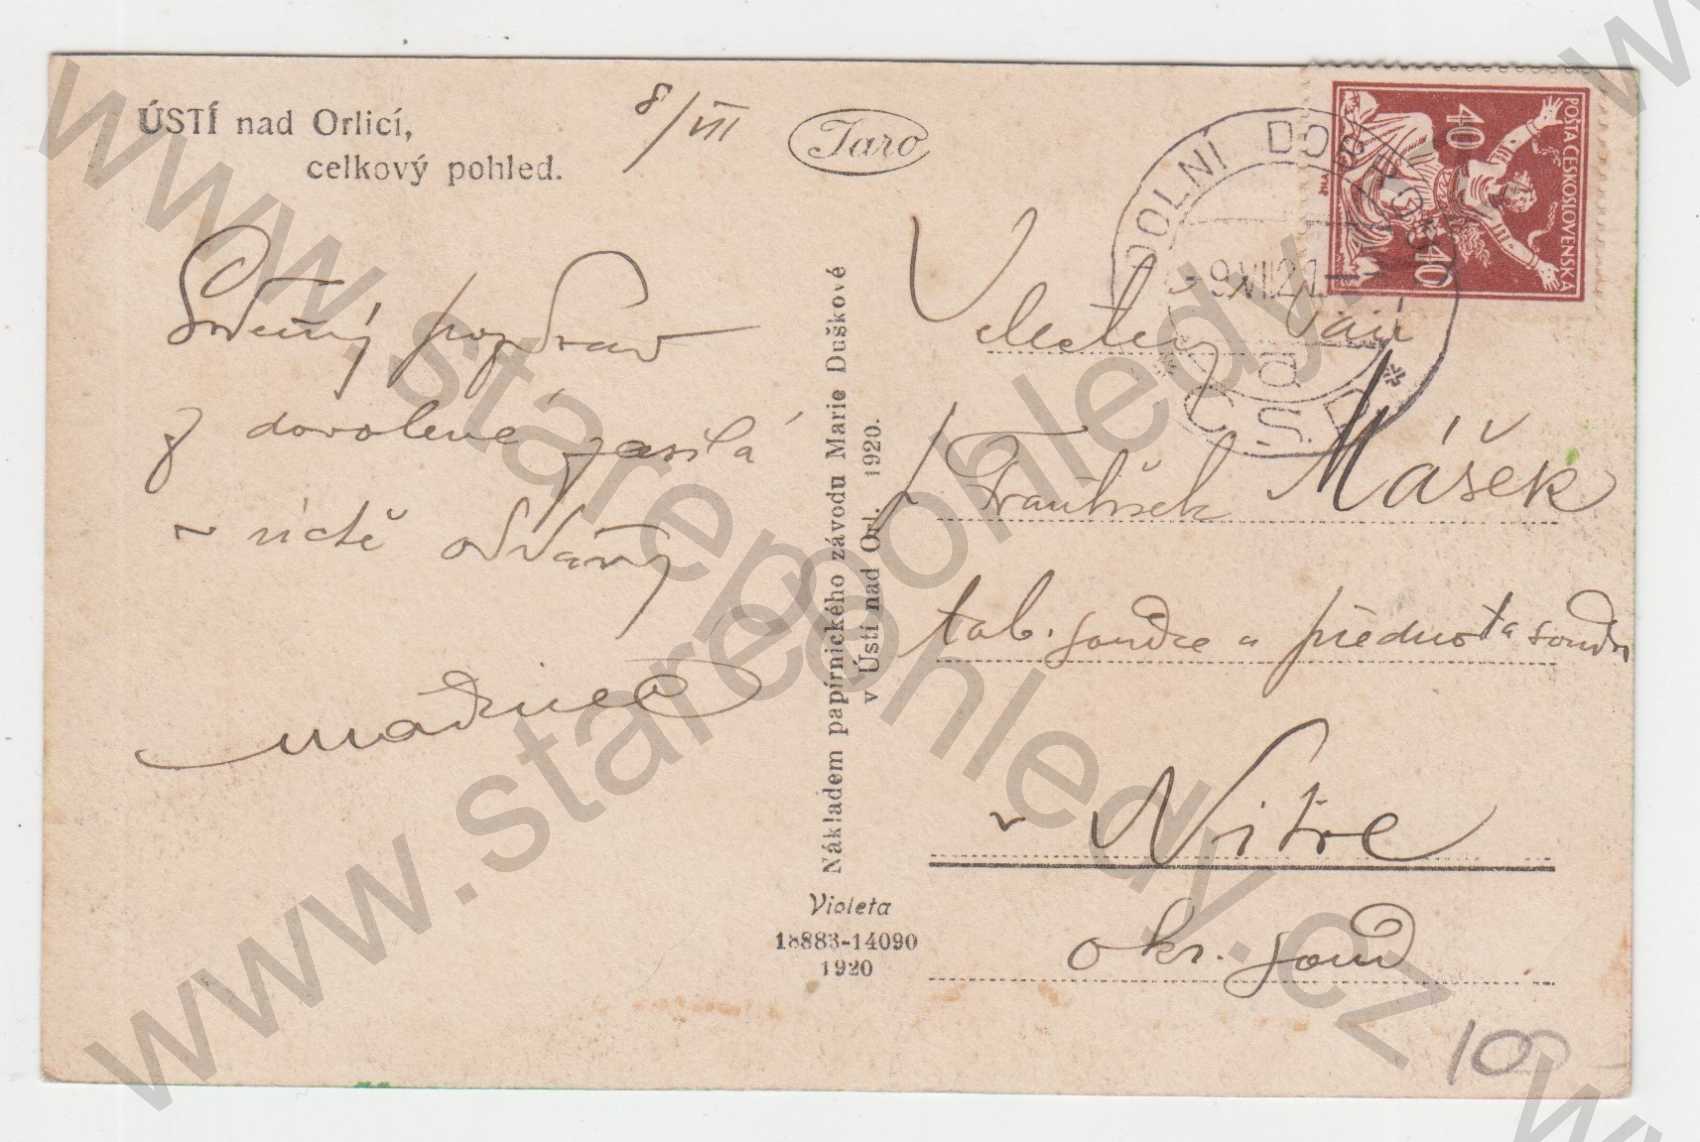 ÚSTÍ nad Orlicí,
celkový pohled.
8/VII
Taro
Srdečný pozdrav
z dovolené zasílá
v úctě oddaný
Nákladem papírnického závodu Marie Duškové
v Ústí nad Orl. 1920.
Violeta
18883-14090
1920
POŠTA ČESKOSLOVENSKÁ
40
40
DOLNÍ DOBROUČ
9.VII.21
a
ČSP
Velectěný Pán
p. František Mášek
rab. soudce a přednosta soudu
v Nitře
okr. soud
100
www.starepohledy.cz
www.starepohledy.cz